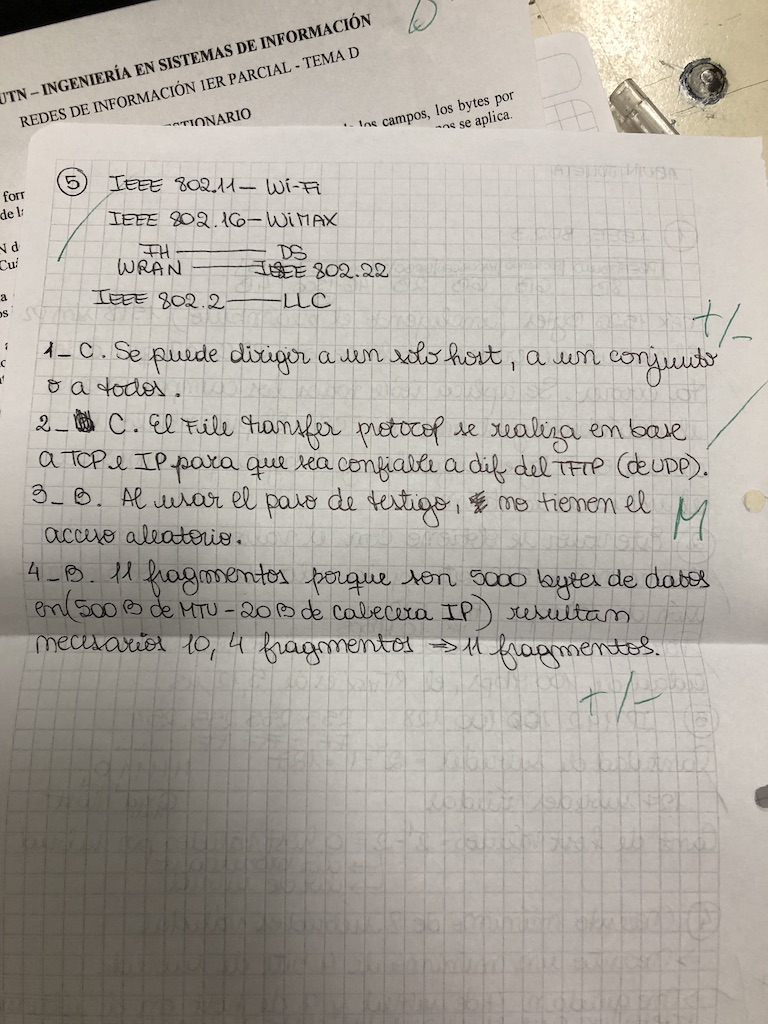 UTN – INGENIERÍA EN SISTEMAS DE INFORMACIÓN
REDES DE INFORMACIÓN 1ER PARCIAL - TEMA D
los campos, los bytes por
se aplica.
5 IEEE 802.11 – Wi-Fi
IEEE 802.16 – WiMAX
IH — DS
WRAN — IEEE 802.22
IEEE 802.2 — LLC
+/-
1_ C. Se puede dirigir a un solo host, a un conjunto
o a todos.
2_ C. El File transfer protocol se realiza en base
a TCP e IP para que sea confiable a dif del TFTP (de UDP).
3_ B. Al usar el paso de testigo, no tienen el
acceso aleatorio.
M
4_ B. 11 fragmentos porque son 5000 bytes de datos
en (500 B de MTU - 20 B de cabecera IP) resultan
necesarios 10,4 fragmentos => 11 fragmentos.
+/-